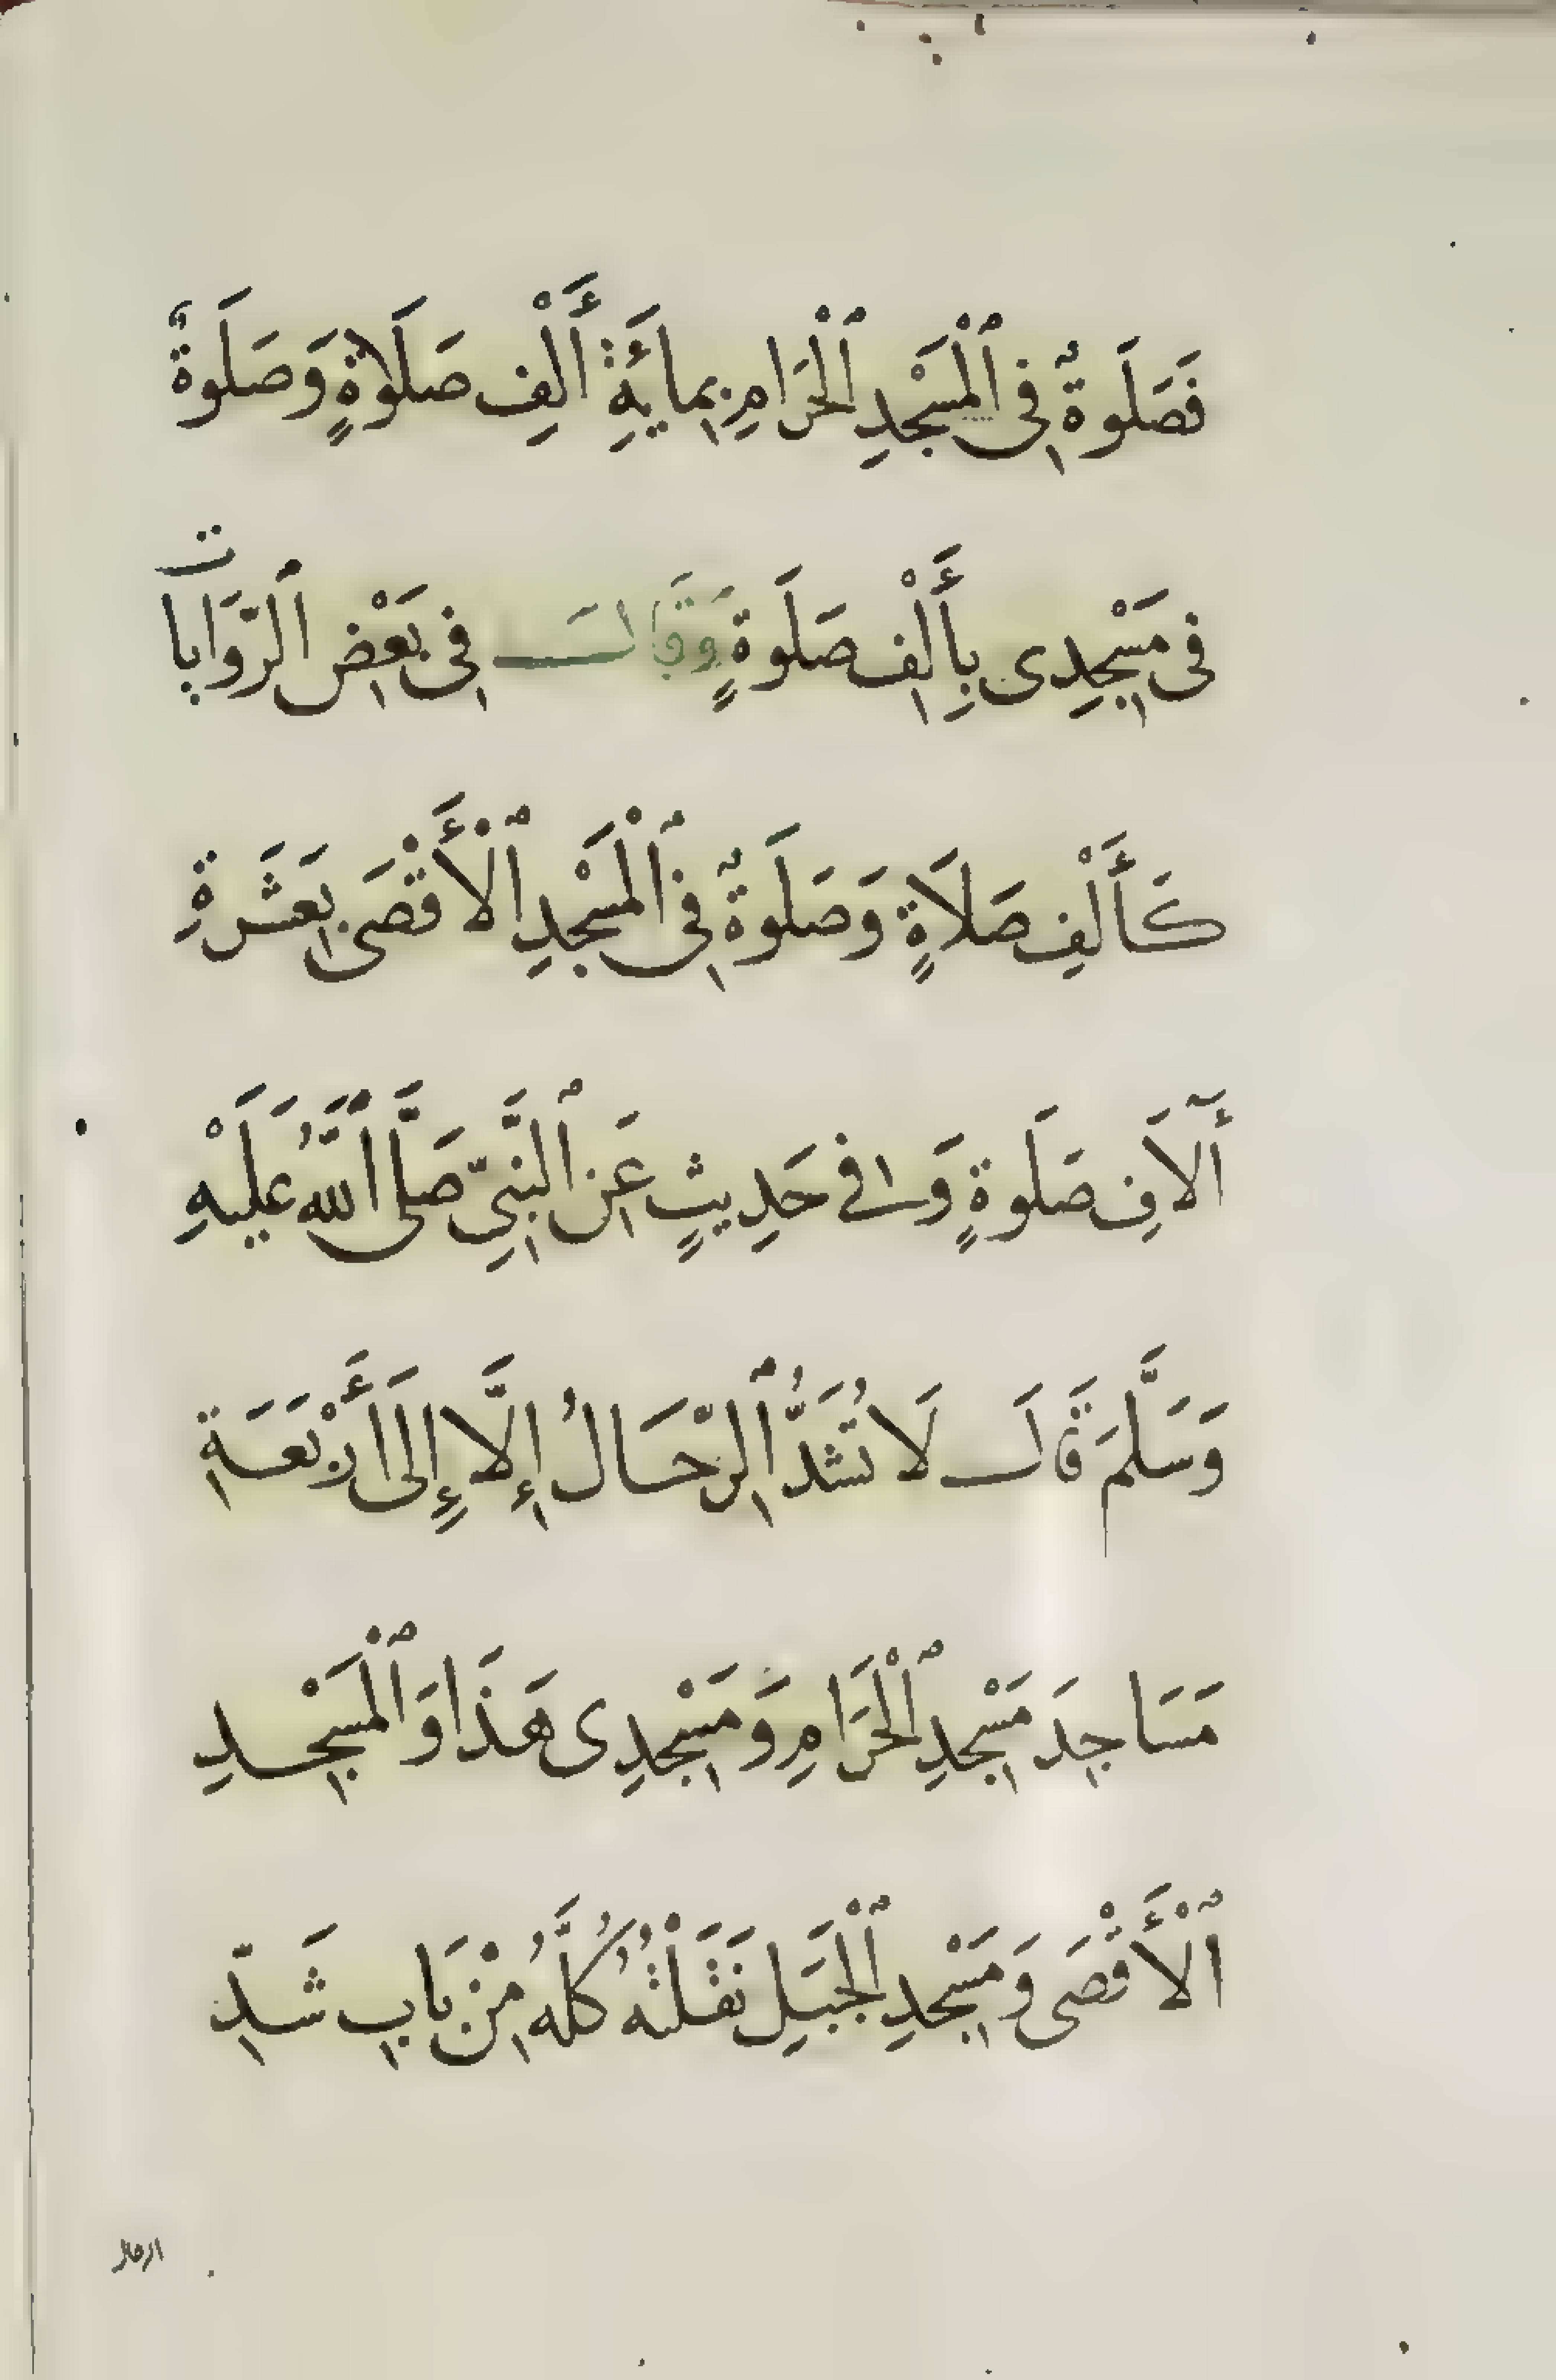 فَصَلَوةٌ فِى ٱلْمَسْجِدِ ٱلْحَرَامِ بِمِايَةِ أَلْفِ صَلَاوةٍ وَصَلَوةٌ
فِى مَسْجِدِى بِأَلْفِ صَلَوةٍ وَقَالَ فِى بَعْضِ ٱلرِّوَايَات
كَأَلْفِ صَلَاةٍ وَصَلَوةٌ فِى ٱلْمَسْجِدِ ٱلْأَقْصَى بِعَشَرَةِ
آلَافِ صَلَوةٍ وَفِى حَدِيثٍ عَنِ ٱلنَّبِىِّ صَلَّى ٱللَّهُ عَلَيْهِ
وَسَلَّمَ قَالَ لَا تُشَدُّ ٱلرِّحَالُ إِلَّا إِلَى أَرْبَعَةِ
مَسَاجِدَ مَسْجِدِ ٱلْحَرَامِ وَمَسْجِدِى هَذَا وَٱلْمَسْجِدِ
ٱلْأَقْصَى وَمَسْجِدِ ٱلْجَبَلِ نَقَلْتُهُ كُلَّهُ مِنْ بَابِ شَدِّ
الرحال